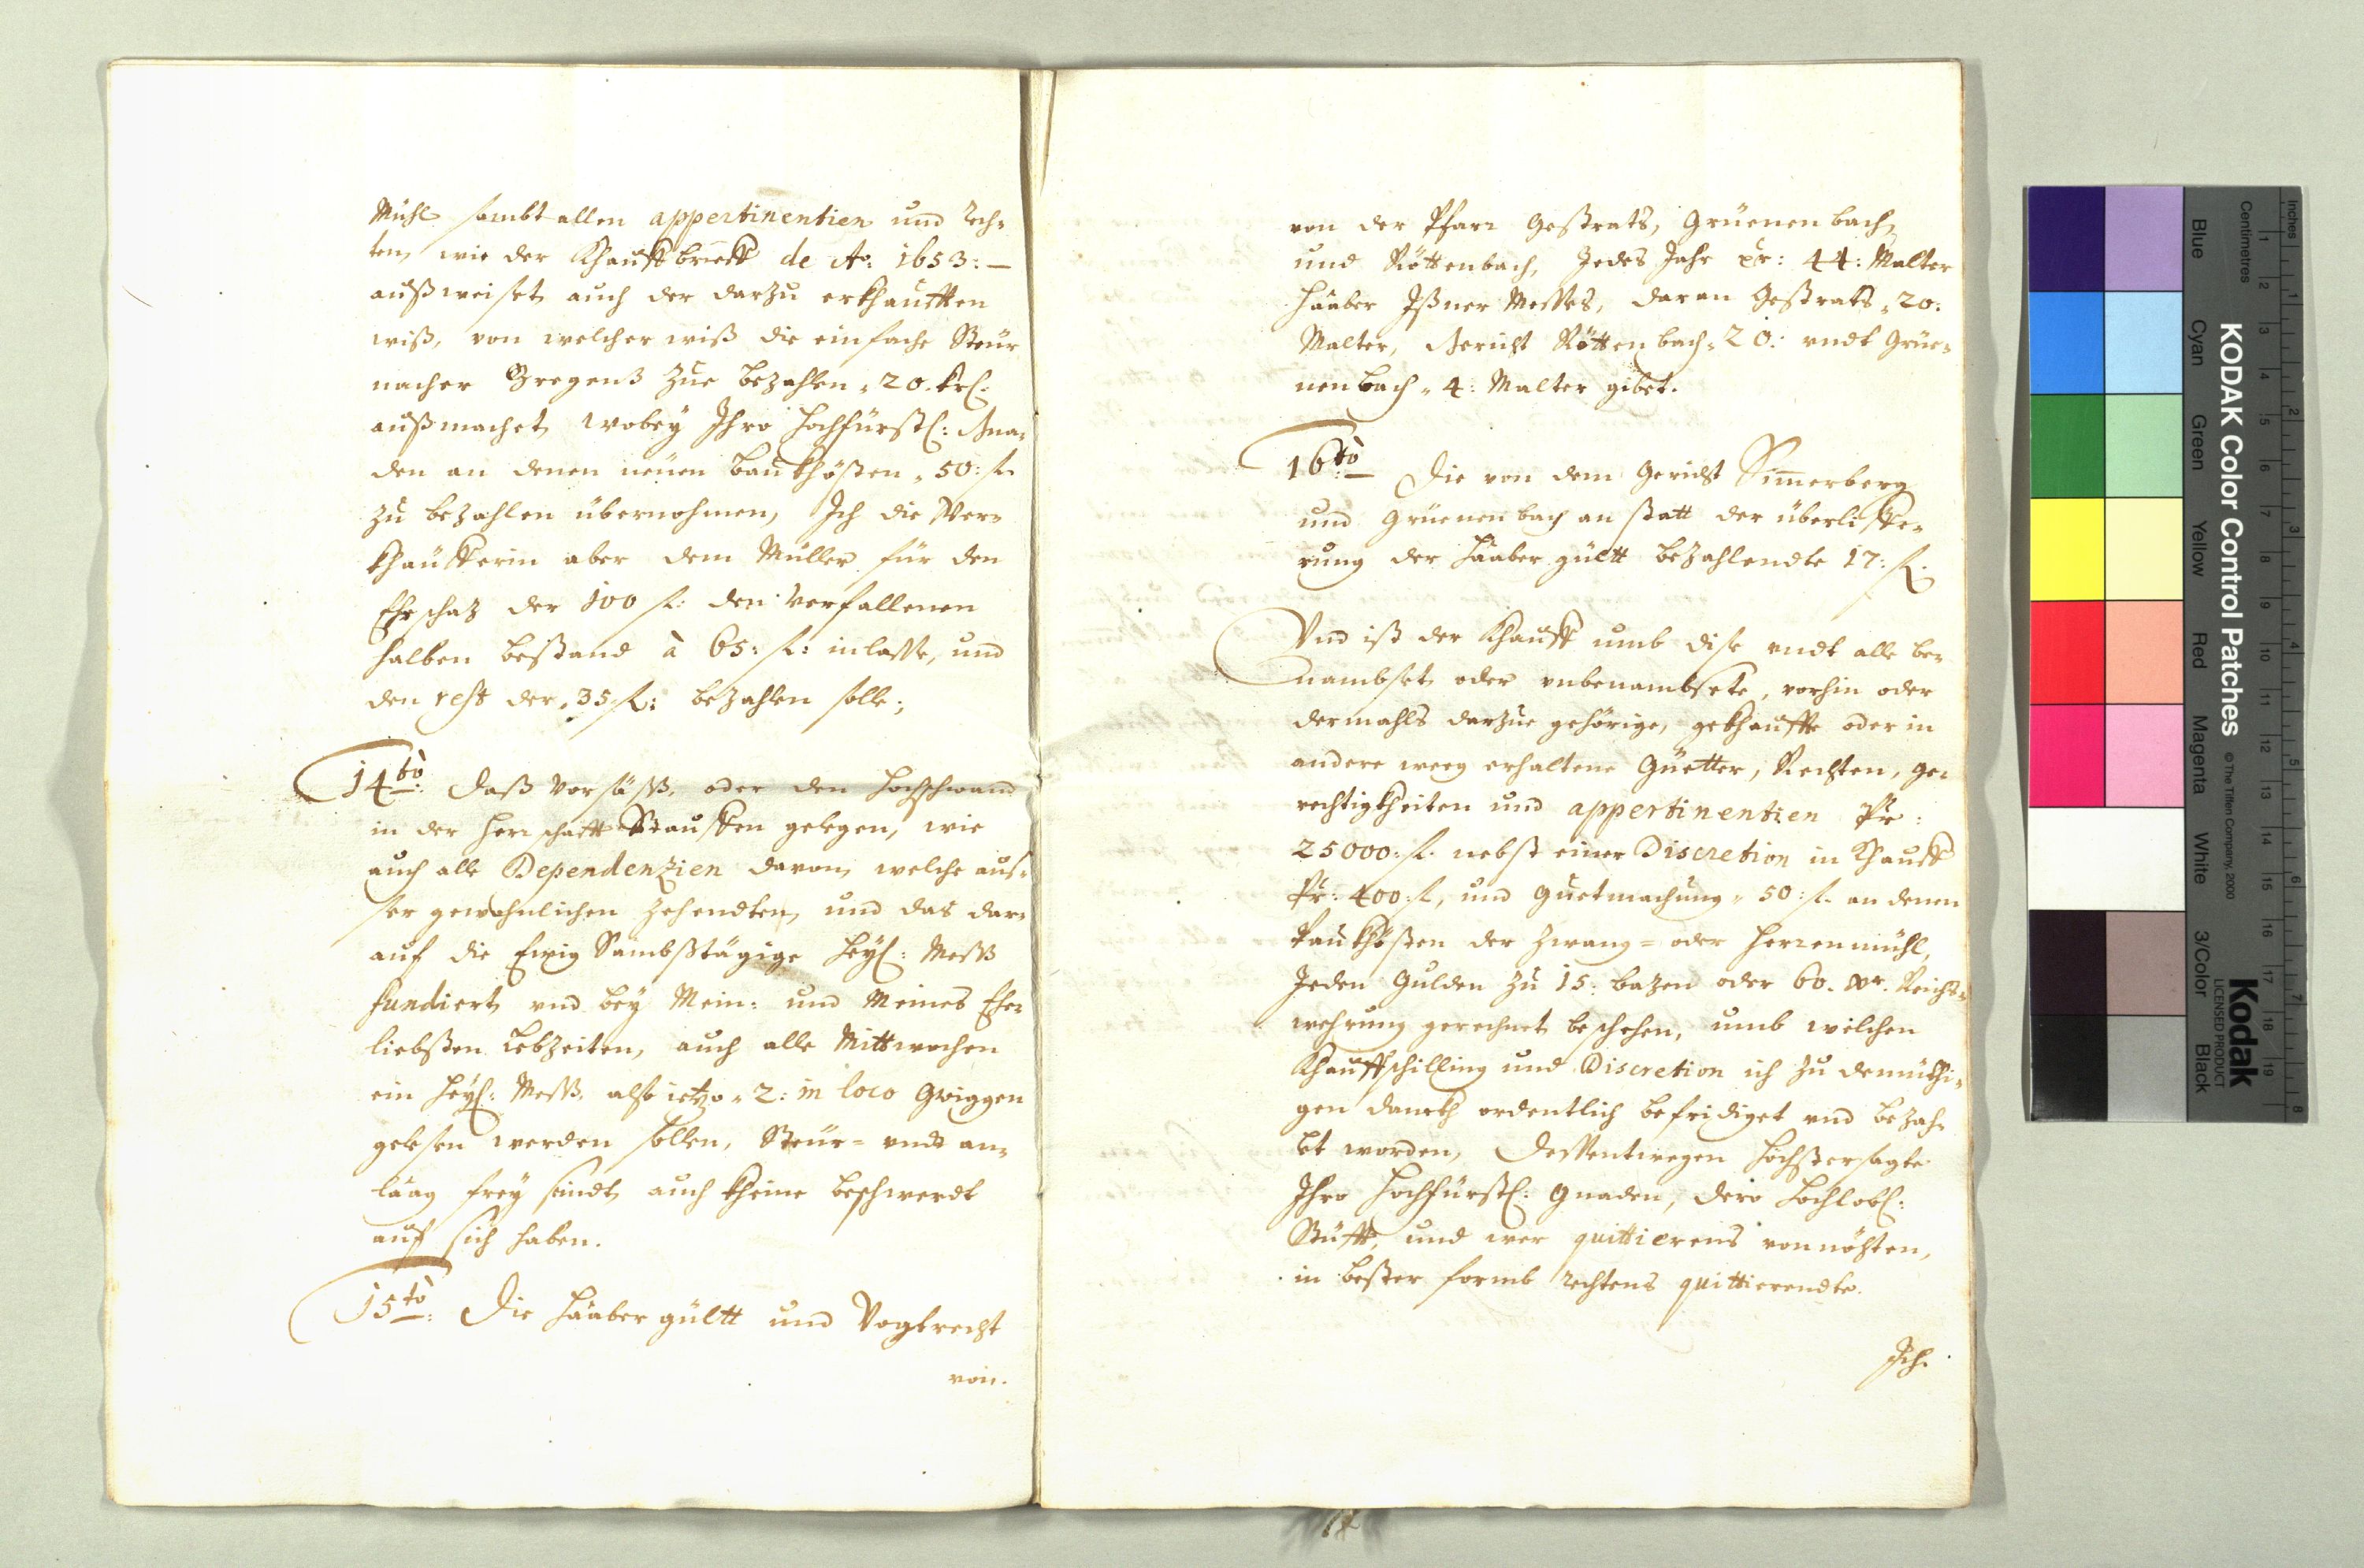 Mühl sambt allen appertinentien und Rech-
ten, wie der Khauffbrieff de Ao: 1653:—
außweiset, auch der darzu erkhaufften
wiß, von welcher wiß die einfache Steür
nacher Bregenz zue bezahlen „ 20. krl.
außmachet, wobey Ihro hochfürstl: Gna-
den an denen neüen baukhösten „ 50: fl.
zu bezahlen übernohmen, Ich die Ver-
khaufferin aber dem Müller für den
Ehrschaz der 100 fl: den verfallenen
halben bestand à 65: fl: inlasse, und
den rest der „ 35 fl: bezahlen solle;
14to: Daß Vorsäß, oder den Hochschwand
in der Herrschafft Stauffen gelegen, wie
auch alle Dependenzien davon, welche aus-
ser gewohnlichen Zehendten, und das dar-
auf die Ewig Sambstägige Heyl: Mess
fundiert, und bey Mein: und Meines Ehe-
liebsten Lebzeiten, auch alle Mittwochen
ein Heyl: Mess, also ietzo „ 2: in loco Gwiggen
gelesen werden sollen, Steür= undt an-
laag frey seindt, auch kheine beschwerdt
auf sich haben.
15to: Die Haaber gültt und Vogtrecht
von.
von der Pfarr Gestrats, Grüenenbach,
und Röttenbach, Jedes Jahr pr: 44: Malter
Haaber Ißner Messes, daran Gestrats „ 20:
Malter, Gericht Röttenbach „ 20: undt Grüe-
nenbach „ 4: Malter gibet.
16to: Die von dem Gericht Simmerberg
und Grüenenbach anstatt der überliffe-
rung der Haaber gültt bezahlendte 17: fl.
Und ist der Khauff umb dise undt alle be-
nambset, oder unbenambsete, vorhin oder
dermahls darzue gehörige, gekhauffte oder in
andere weeg erhaltene Güetter, Rechten, ge-
rechtigkheiten und appertinentien Pr:
25000: fl. nebst einer Discretion in Khauff
Pr: 400: fl, und Guetmachung „ 50: fl. an denen
baukhösten der Zwang= oder Herrenmühl,
Jeden Gulden zu 15: bazen oder 60. xr. Reichs-
wehrung gerechnet beschehen, umb welchen
Khauffschilling und Discretion ich zu demüthi-
gen danckh ordentlich befridiget und bezah-
lt worden, Dessentwegen höchstersagte
Ihro Hochfürstl: Gnaden, dero Hochlobl:
Stüfft, und wer quittierens vonnöthen,
in bester formb rechtens quittierendte.
Ich.
Inches
Centimetres
KODAK Color Control Patches
© The Tiffen Company, 2000
Kodak
LICENSED PRODUCT
Blue
Cyan
Green
Yellow
Red
Magenta
White
3/Color
Black